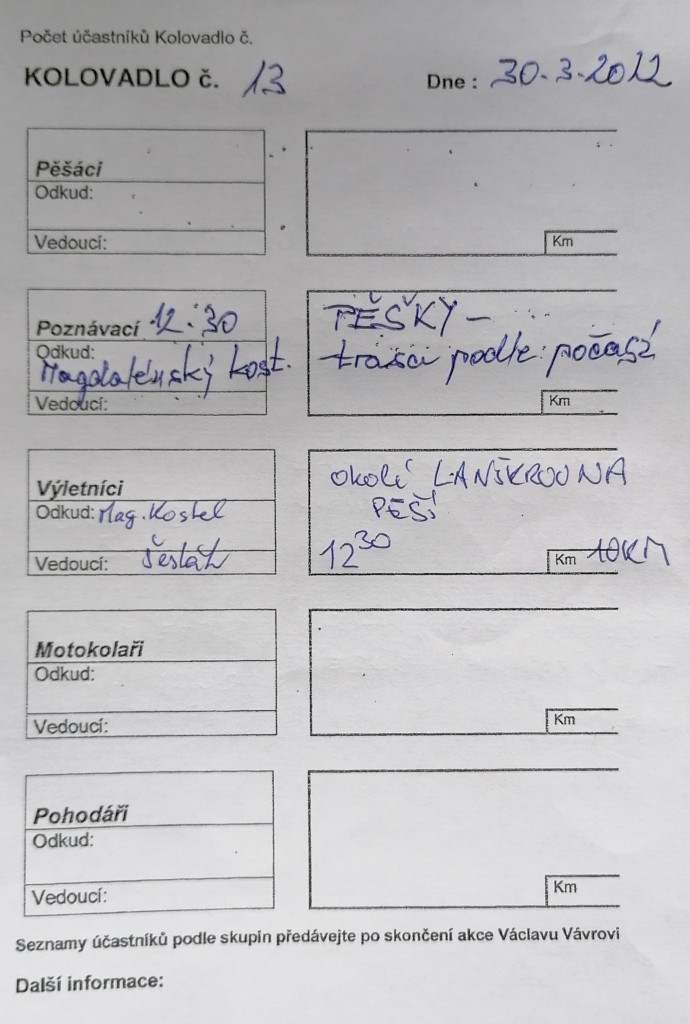 Počet účastníků Kolovadlo č.
KOLOVADLO č. 13 Dne : 30.3.2022
Pěšáci
Odkud:
Vedoucí:
Km
Poznávací 12.30
Odkud: Magdalénský kost.
Vedoucí:
PĚŠKY –
trasa podle počasí
Km
Výletníci
Odkud: Mag. Kostel
Vedoucí: Šesták
okolí LANŠKROUNA
PĚŠÍ
12 30
Km 10KM
Motokolaři
Odkud:
Vedoucí:
Km
Pohodáři
Odkud:
Vedoucí:
Km
Seznamy účastníků podle skupin předávejte po skončení akce Václavu Vávrovi
Další informace: